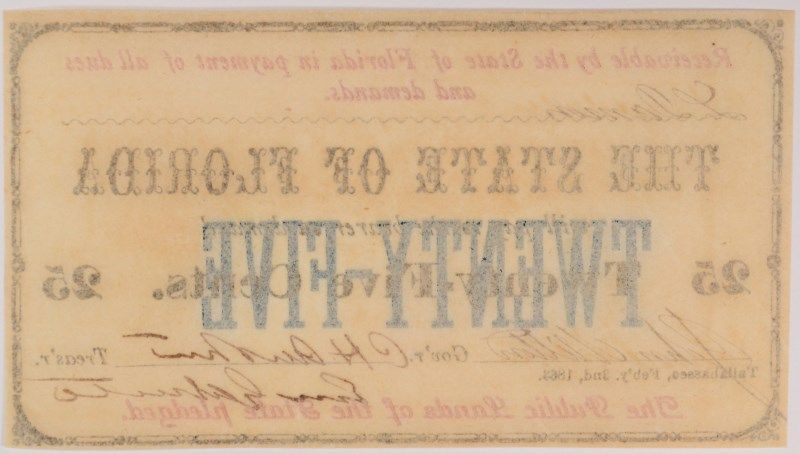 Receivable by the State of Florida in payment of all dues
and demands.
THE STATE OF FLORIDA
will pay bearer on demand
TWENTY-FIVE
25 Twenty-Five Cents. 25
Gov'r. Treas'r.
Tallahassee, Feb'y. 2nd, 1863.
The Public Lands of the State pledged.